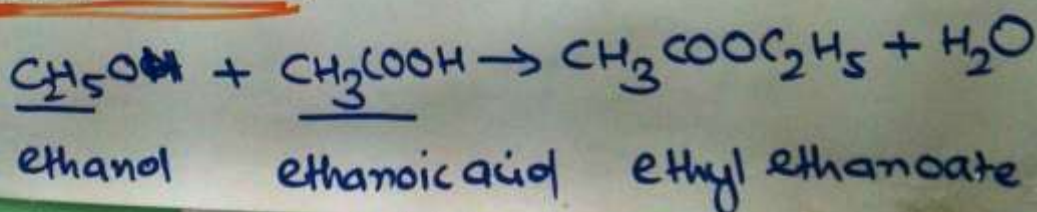 C₂H₅OH + CH₃COOH → CH₃COOC₂H₅ + H₂O
ethanol ethanoic acid ethyl ethanoate